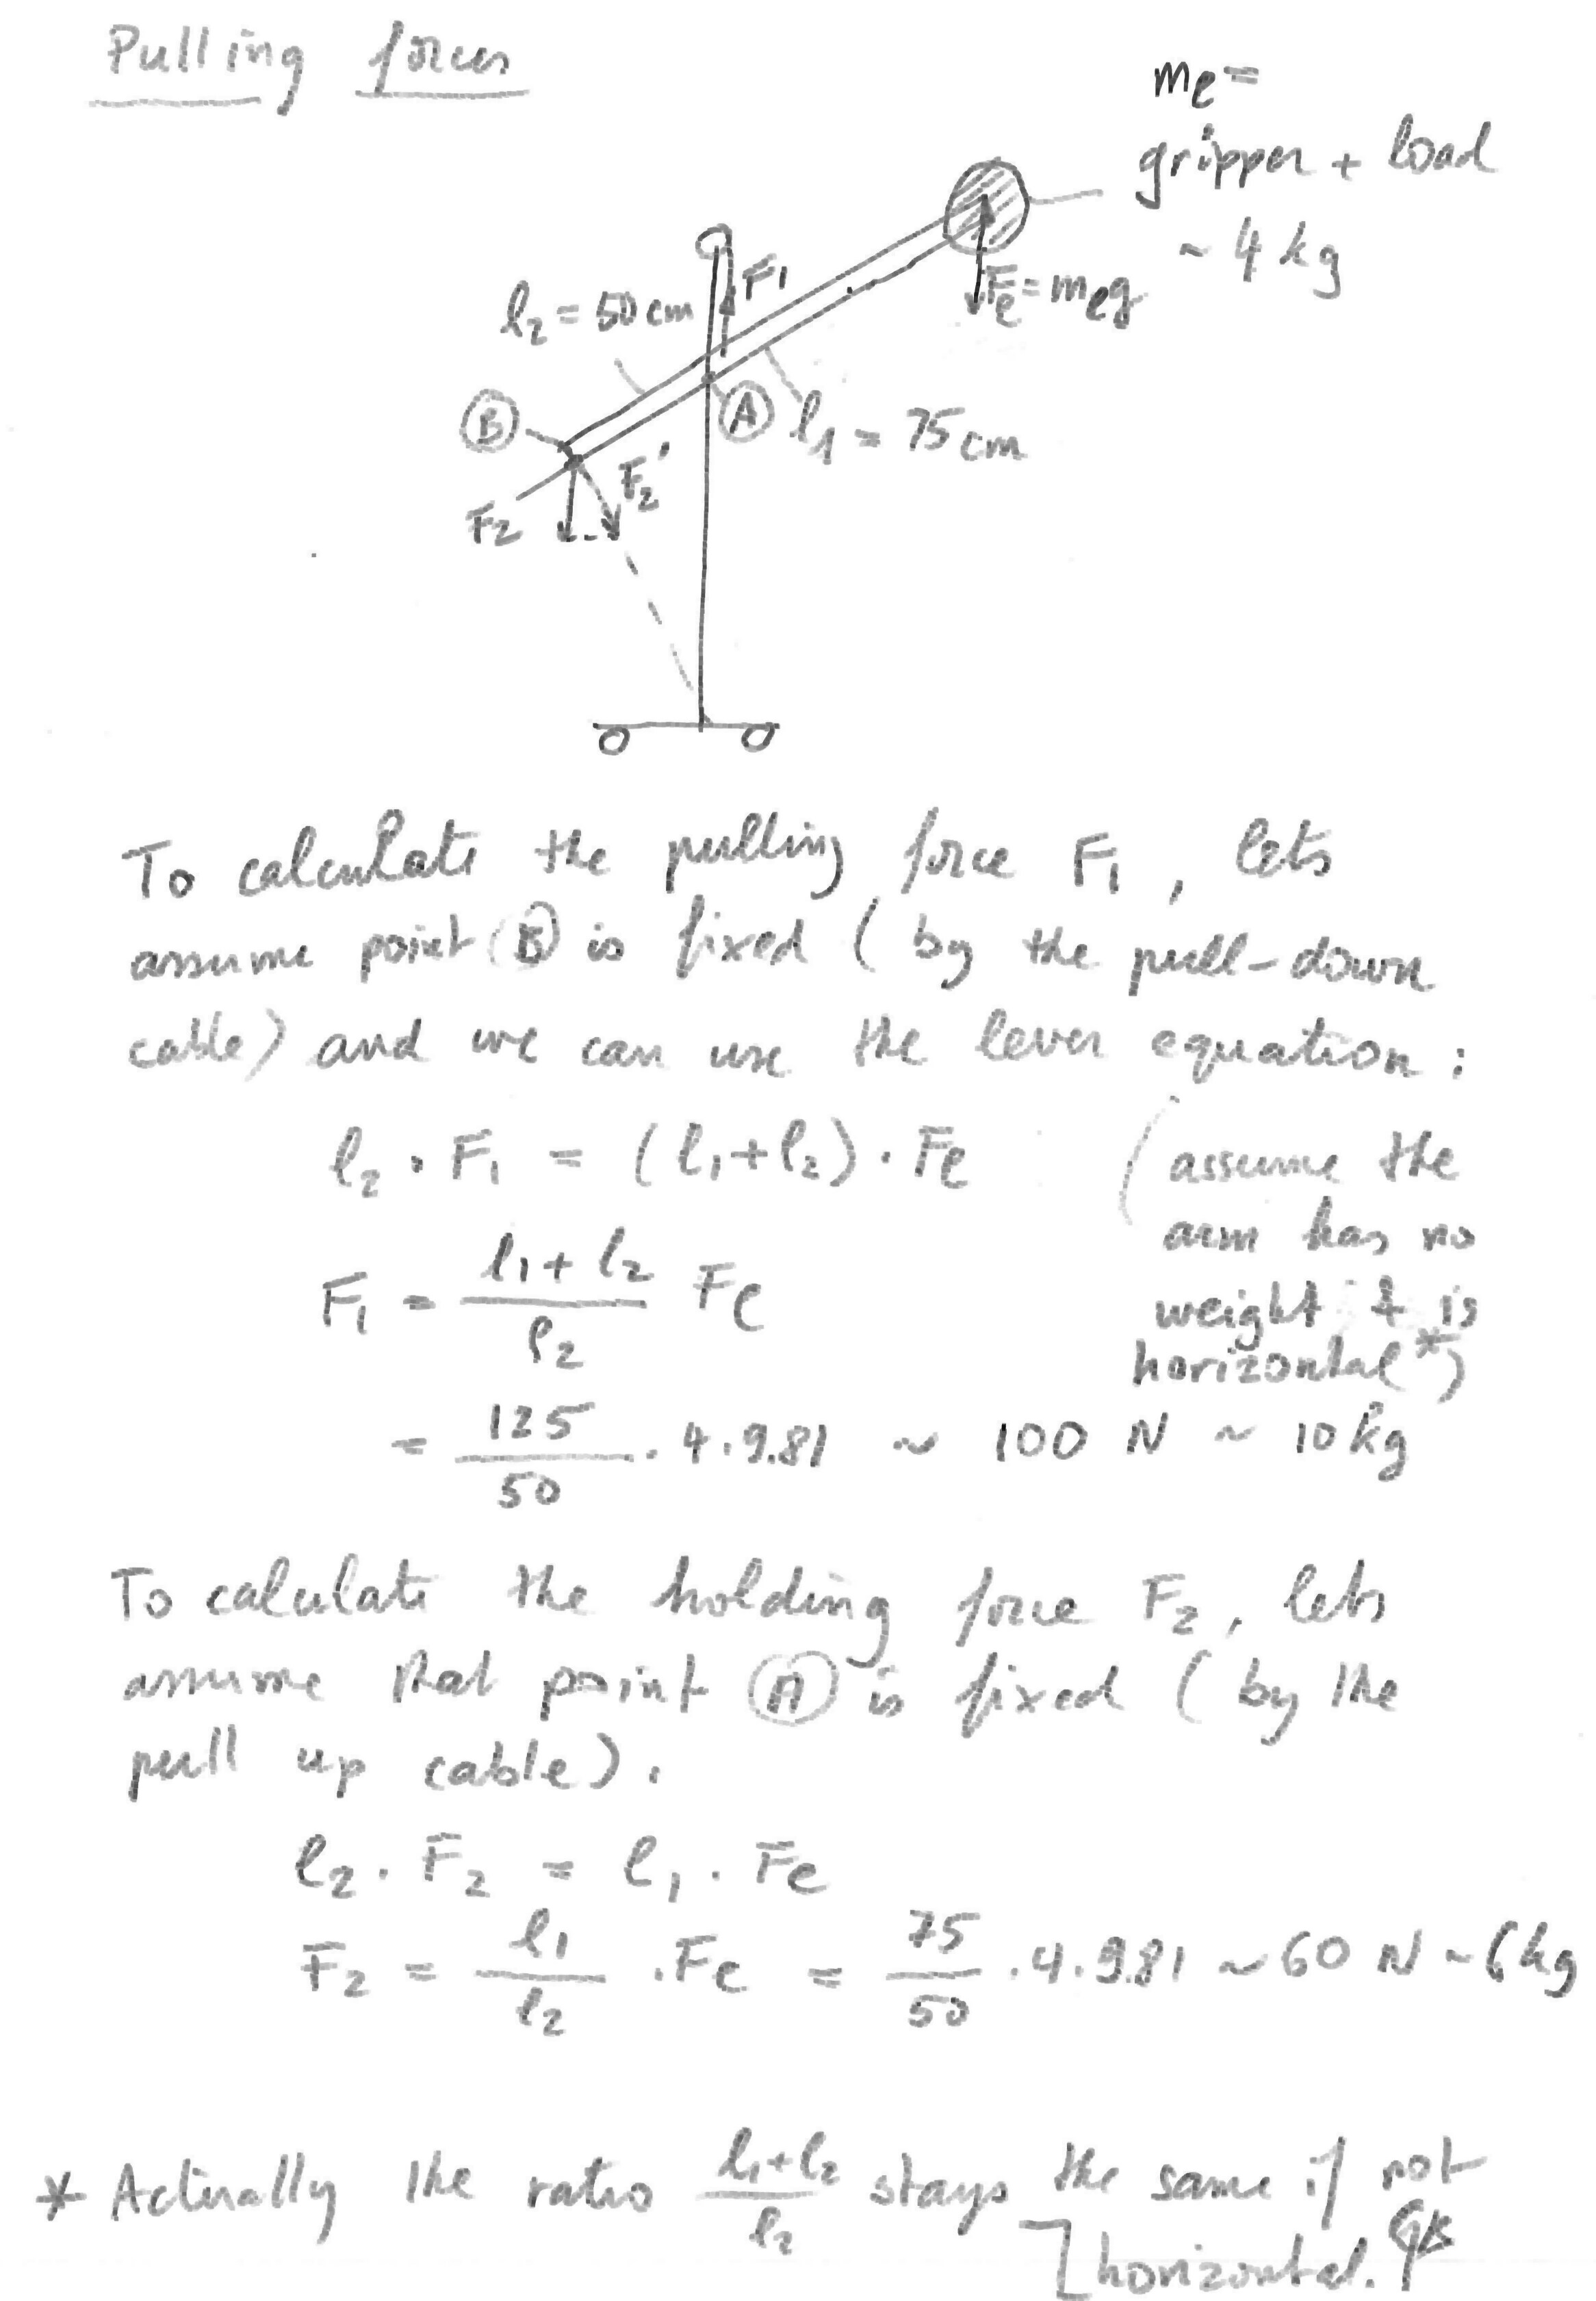 Pulling forces
me =
gripper + load
~ 4 kg
F1
l2 = 50 cm
Fe = meg
B
A
l1 = 75 cm
F2'
F2
To calculate the pulling force F1, lets
assume point B is fixed ( by the pull-down
cable) and we can use the lever equation :
l2 . F1 = (l1+l2) . Fe
(assume the
arm has no
weight & is
horizontal*)
F1 = l1+l2 / l2 Fe
= 125 / 50 . 4 . 9.81 ~ 100 N ~ 10 kg
To calulate the holding force F2, lets
assume that point A is fixed ( by the
pull up cable).
l2 . F2 = l1 . Fe
F2 = l1 / l2 . Fe = 75 / 50 . 4 . 9.81 ~ 60 N ~ 6 kg
* Actually the ratio l1+l2 / l2 stays the same if not
horizontal.